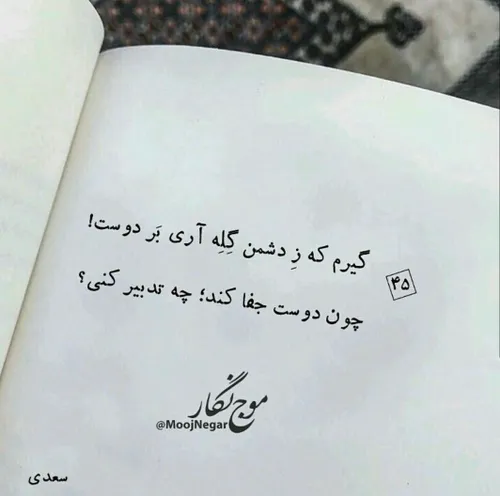 گیرم که زِ دشمن گِلِه آری بَر دوست!
۴۵
چون دوست جفا کند؛ چه تدبیر کنی؟
موج نگار
@MoojNegar
سعدی